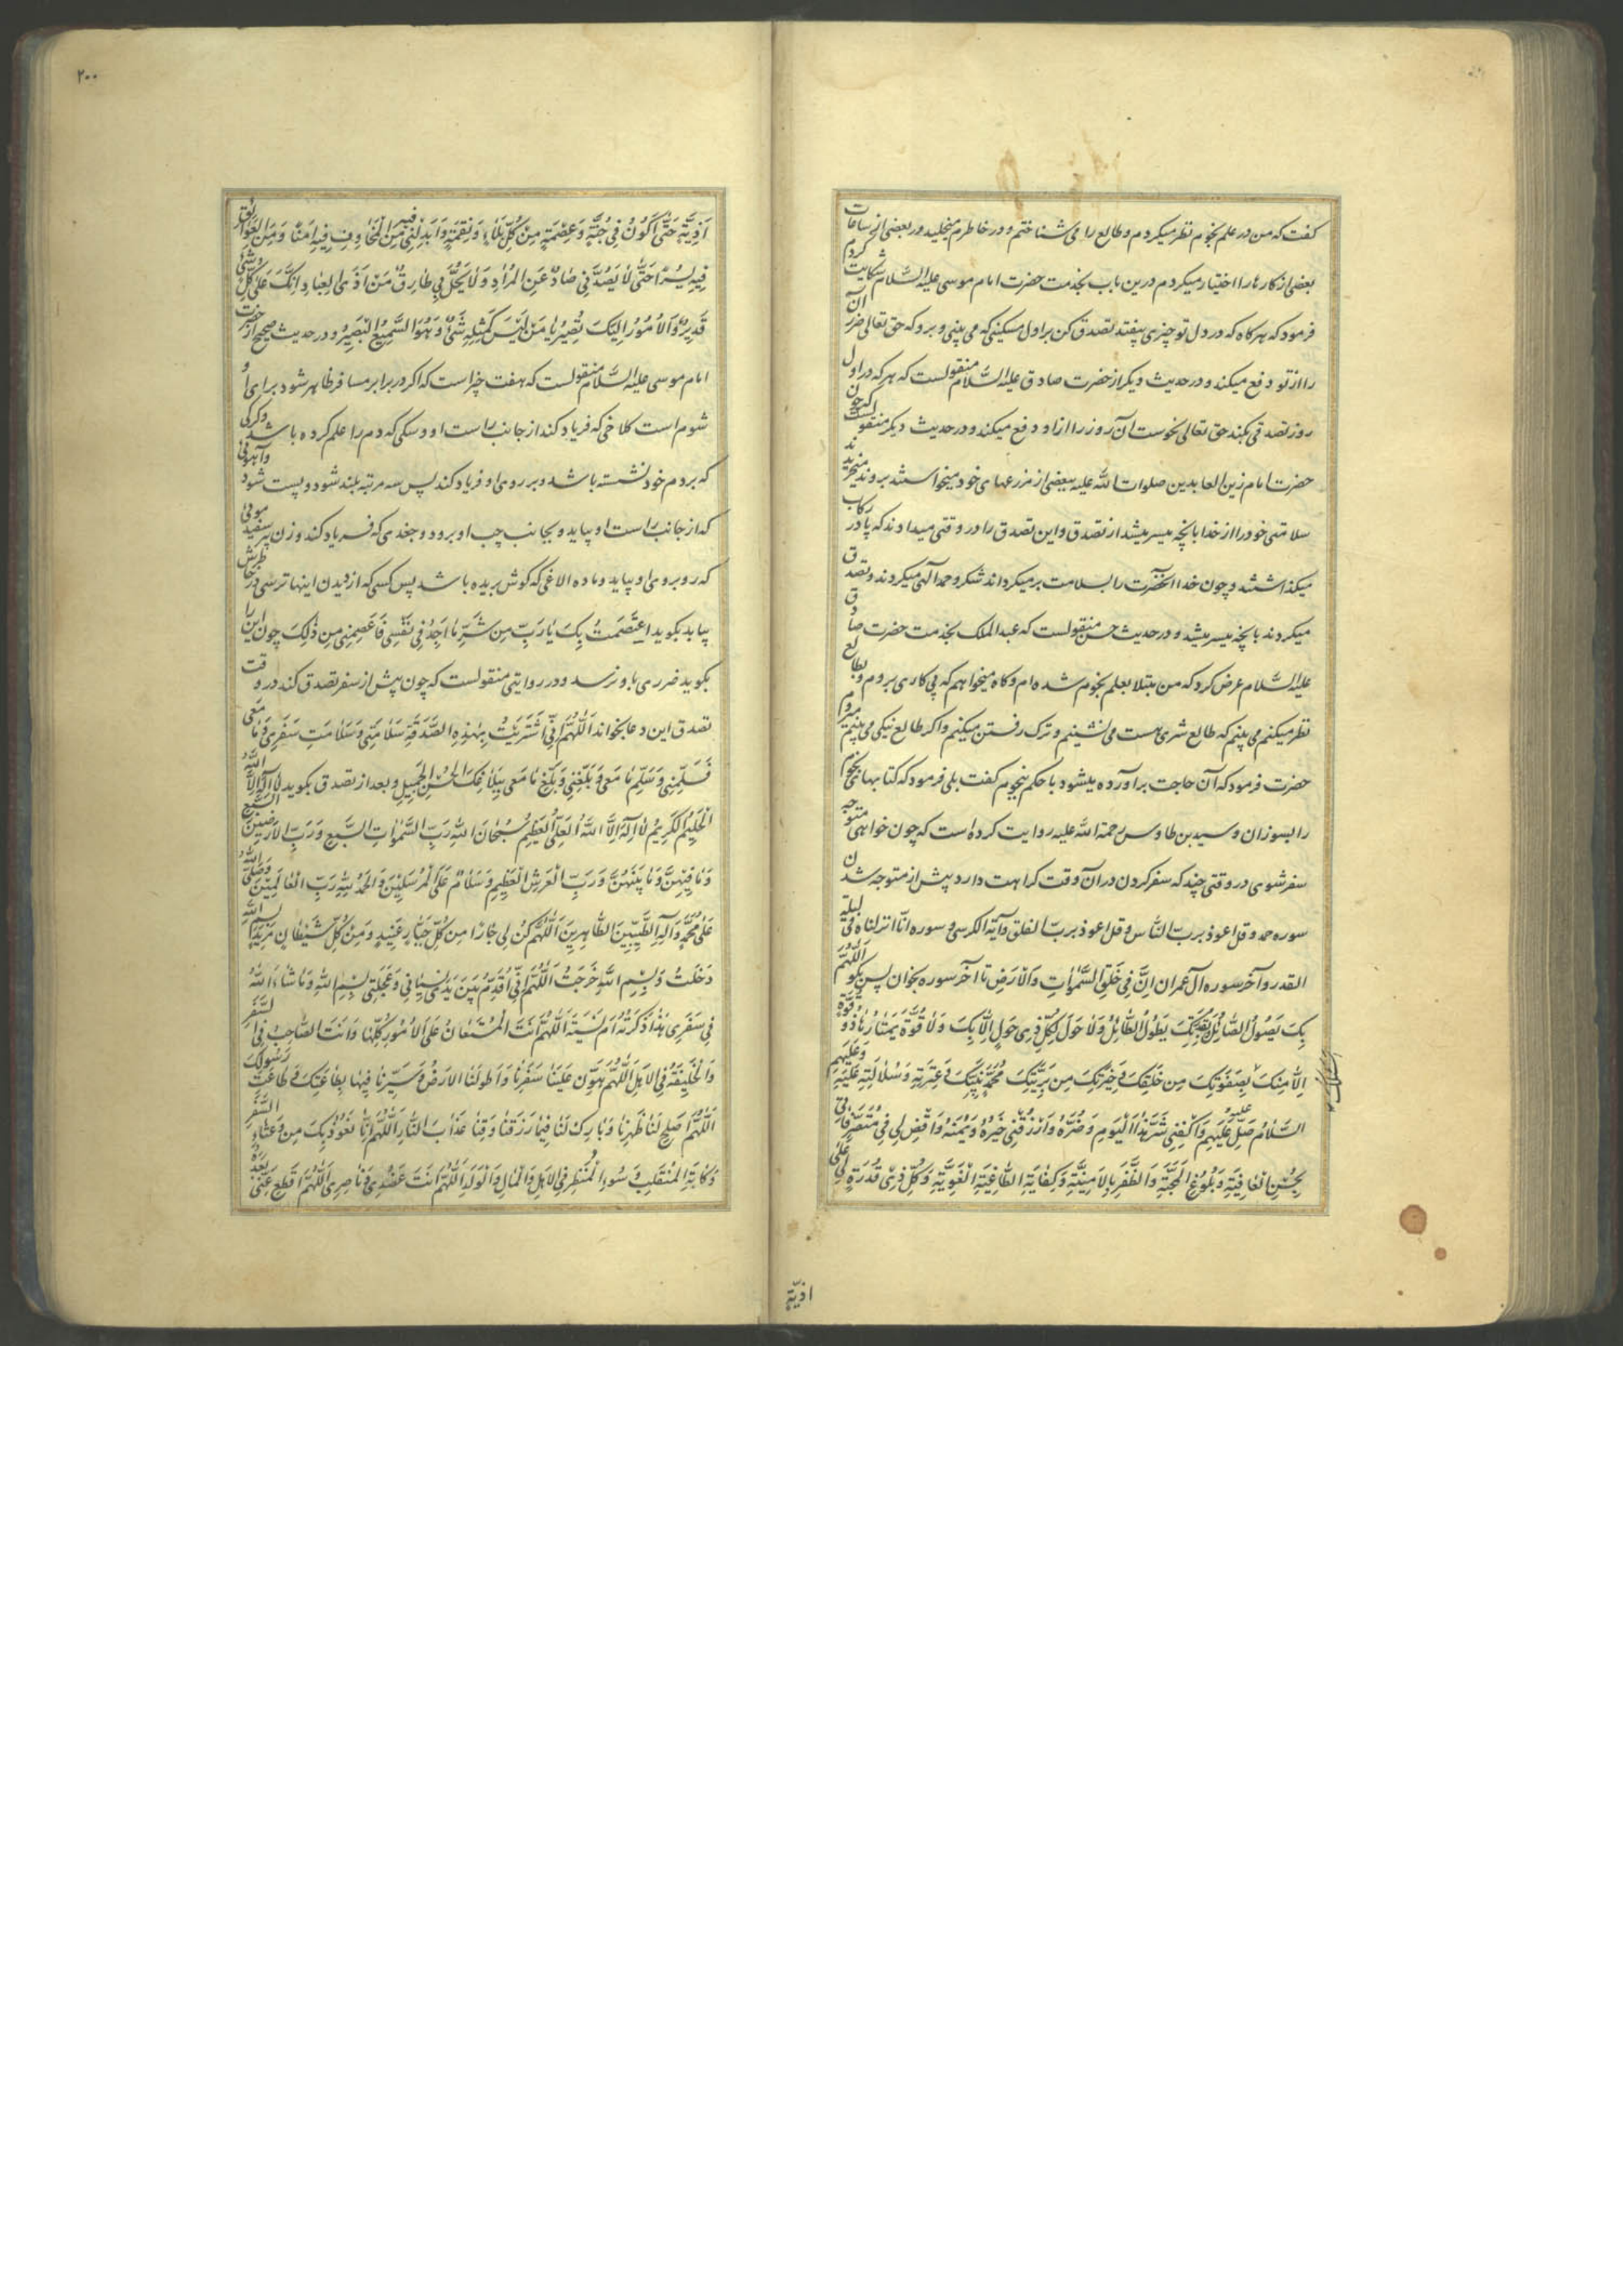 کفت که من در علم نجوم نظر میکردم و طالع را می شناختم و در خاطرم میخلید در بعضی از ساعات
بعضی از کارها را اختیار میکردم درین باب بخدمت حضرت امام موسی علیه السّلام شکایت کردم
فرمود که هرکاه که در دل تو چیزی بیفتد تصدق کن بر اول مسکینی که می بینی و برو که حق تعالی ضرر آن
را از تو دفع میکند و در حدیث دیکر از حضرت صادق علیه السّلام منقولست که هر که در اول
روز تصدقی بکند حق تعالی نحوست آن روز را ازاو دفع میکند و در حدیث دیکر منقولست که چون
حضرت امام زین العابدین صلوات الله علیه ببعضی از مزرعهای خود میخواستند بروند میخریدند
سلامتی خود را از خدا بانچه میسر میشد از تصدق و این تصدق را در وقتی میدادند که پا در رکاب
میکذاشتند و چون خدا آنحضرت را بسلامت برمیکرداند شکر و حمد آلهی میکردند و تصدق
میکردند بانچه میسر میشد و در حدیث حسن منقولست که عبد الملک بخدمت حضرت صادق
علیه السّلام عرض کرد که من مبتلا بعلم نجوم شده ام و کاه میخواهم که پی کاری بروم و بطالع
نظر میکنم می بینم که طالع شری هست می نشینم و ترک رفتن میکنم و اکر طالع نیکی می بینم میروم
حضرت فرمود که آن حاجت براورده میشود یا حکم بنجوم کفت بلی فرمود که کتابهای نجوم
را بسوزان و سید بن طاوس رحمة الله علیه روایت کرده است که چون خواهی متوجه
سفر شوی در وقتی چند که سفر کردن در آن وقت کراهت دارد پیش از متوجه شدن
سوره حمد و قل اعوذ برب النّاس و قل اعوذ برب الفلق و آیة الکرسی و سوره انّا انزلناه فی لیلة
القدر و آخر سوره آل عمران اِنَّ فِی خَلْقِ السَّمٰواتِ وَالْاَرْضِ تا آخر سوره بخوان پس بکو اَللّٰهُمَّ
بِکَ یَصُولُ الصّٰائِلُ وَبِقُدْرَتِکَ یَطُولُ الطّٰائِلُ وَلاٰ حَوْلَ لِکُلِّ ذِی حَوْلٍ اِلّٰا بِکَ وَلاٰ قُوَّةَ یَمْتٰارُهٰا ذُو قُوَّةٍ
اِلّٰا مِنْکَ بِصَفْوَتِکَ مِن خَلْقِکَ وَخِیَرَتِکَ مِن بَرِیَّتِکَ مُحَمَّدٍ نَبِیِّکَ وَعِتْرَتِهِ وَسُلٰالَتِهِ عَلَیْهِ وَعَلَیْهِم
السَّلٰامُ صَلِّ عَلَیْهِم وَاکْفِنِی شَرَّ هٰذَا الْیَومِ وَضُرَّهُ وَارْزُقْنِی خَیْرَهُ وَیُمْنَهُ وَاقْضِ لِی فِی مُتَصَرَّفٰاتِی
بِحُسْنِ الْعٰافِیَةِ وَبُلُوغِ الْمَحَبَّةِ وَالظَّفَرِ بِالاُمْنِیَّةِ وَکِفٰایَةِ الطّٰاغِیَةِ الْغَوِیَّةِ وَکُلِّ ذِی قُدْرَةٍ لِی عَلٰی
اذیّةٍ
۲۰۰
اَذِیَّةٍ حَتّٰی اَکُونَ فِی جُنَّةٍ وَعِصْمَةٍ مِنْ کُلِّ بَلٰاءٍ وَنِقْمَةٍ وَاَبْدِلْنِی مِنَ الْمَخٰاوِفِ فِیهِ اَمْنًا وَمِنَ الْعَوٰائِقِ
فِیهِ یُسْرًا حَتّٰی لاٰ یَصُدَّنِی صٰادٌّ عَنِ الْمُرٰادِ وَلاٰ یَحُلَّ بِی طٰارِقٌ مِنْ اَذَی الْعِبٰادِ اِنَّکَ عَلٰی کُلِّ شَیْءٍ
قَدِیرٌ وَالاُمُورُ اِلَیْکَ تَصِیرُ یٰا مَنْ لَیْسَ کَمِثْلِهِ شَیْءٌ وَهُوَ السَّمِیعُ الْبَصِیرُ و در حدیث صحیح از حضرت
امام موسی علیه السّلام منقولست که هفت چیز است که اکر در برابر مسافر ظاهر شود برای او
شوم است کلاغی که فریاد کند از جانب راست او و سکی که دم را علم کرده باشد و کرکی
که بر دم خود نشسته باشد و بر روی او فریاد کند پس سه مرتبه بلند شود و پست شود و آهوئی
که از جانب راست او بیاید و بجانب چپ او برود و جغدی که فریاد کند و زن پیر سفید موئی
که روبروی او بیاید و ماده الاغی که کوش بریده باشد پس کسی که از دیدن اینها ترسی در خاطرش
بیاید بکوید اِعْتَصَمْتُ بِکَ یٰا رَبِّ مِن شَرِّ مٰا اَجِدُ فِی نَفْسِی فَاعْصِمْنِی مِن ذٰلِکَ چون این را
بکوید ضرری باو نرسد و در روایتی منقولست که چون پیش از سفر تصدق کند در وقت
تصدق این دعا بخواند اَللّٰهُمَّ اِنِّی اشْتَرَیْتُ بِهٰذِهِ الصَّدَقَةِ سَلٰامَتِی وَسَلٰامَتِ سَفَرِی وَمٰا مَعِی
فَسَلِّمْنِی وَسَلِّم مٰا مَعِی وَبَلِّغْنِی وَبَلِّغ مٰا مَعِی بِبَلٰاغِکَ الْحَسَنِ الْجَمِیلِ و بعد از تصدق بکوید لاٰ اِلٰهَ اِلَّا اللّٰهُ
الْحَلِیمُ الْکَرِیمُ لاٰ اِلٰهَ اِلَّا اللّٰهُ الْعَلِیُّ الْعَظِیمُ سُبْحٰانَ اللّٰهِ رَبِّ السَّمٰوٰاتِ السَّبْعِ وَرَبِّ الاَرَضِینَ السَّبْعِ
وَمٰا فِیهِنَّ وَمٰا بَیْنَهُنَّ وَرَبِّ الْعَرْشِ الْعَظِیمِ وَسَلٰامٌ عَلَی الْمُرسَلِینَ وَالْحَمْدُ لِلّٰهِ رَبِّ الْعٰالَمِینَ وَصَلَّی اللّٰهُ
عَلٰی مُحَمَّدٍ وَآلِهِ الطَّیِّبِینَ الطّٰاهِرِینَ اَللّٰهُمَّ کُنْ لِی جٰارًا مِن کُلِّ جَبّٰارٍ عَنِیدٍ وَمِنْ کُلِّ شَیْطٰانٍ مَرِیدٍ بِسْمِ اللّٰهِ
دَخَلْتُ وَبِسْمِ اللّٰهِ خَرَجْتُ اَللّٰهُمَّ اِنِّی اُقَدِّمُ بَیْنَ یَدَیْ نِسْیٰانِی وَعَجَلَتِی بِسْمِ اللّٰهِ وَمٰا شٰاءَ اللّٰهُ
فِی سَفَرِی هٰذَا ذَکَرْتُهُ اَمْ نَسِیتُهُ اَللّٰهُمَّ اَنْتَ الْمُسْتَعٰانُ عَلَی الاُمُورِ کُلِّهٰا وَاَنْتَ الصّٰاحِبُ فِی السَّفَرِ
وَالْخَلِیفَةُ فِی الاَهْلِ اَللّٰهُمَّ هَوِّن عَلَیْنٰا سَفَرَنٰا وَاطْوِ لَنَا الاَرْضَ وَسَیِّرْنٰا فِیهٰا بِطٰاعَتِکَ وَطٰاعَتِ رَسُولِکَ
اَللّٰهُمَّ اَصْلِحْ لَنٰا ظَهْرَنٰا وَبٰارِک لَنٰا فِیمٰا رَزَقْتَنٰا وَقِنٰا عَذٰابَ النّٰارِ اَللّٰهُمَّ اِنّٰا نَعُوذُ بِکَ مِن وَعْثٰاءِ السَّفَرِ
وَکَآبَةِ الْمُنْقَلَبِ وَسُوءِ الْمَنْظَرِ فِی الاَهْلِ وَالْمٰالِ وَالْوَلَدِ اَللّٰهُمَّ اَنْتَ عَضُدِی وَنٰاصِرِی اَللّٰهُمَّ اقْطَعْ عَنِّی بُعْدَهُ